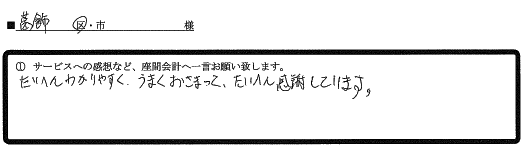 ■葛飾 区・市 様
① サービスへの感想など、座間会計へ一言お願い致します。
たいへんわかりやすく、うまくおさまって、たいへん感謝しています。